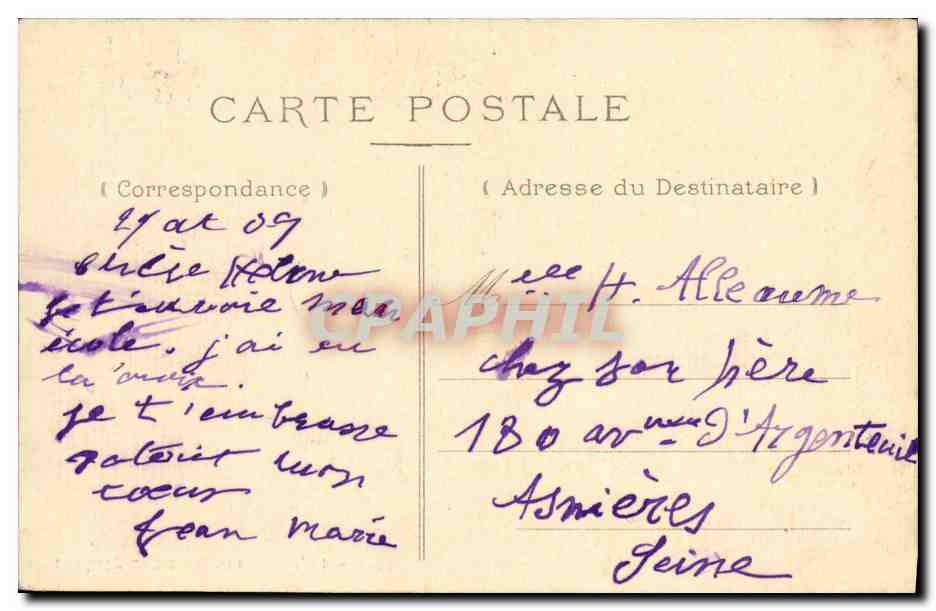 CARTE POSTALE
( Correspondance )
at 09
Hélène
je t'envoie mon
école. j'ai eu
la croix.
je t'embrasse
mon
coeur
Jean Marie
( Adresse du Destinataire )
Melle H. Alleaume
chez son père
180 avnue d'Argenteuil
Asnières
Seine
CPAPHIL